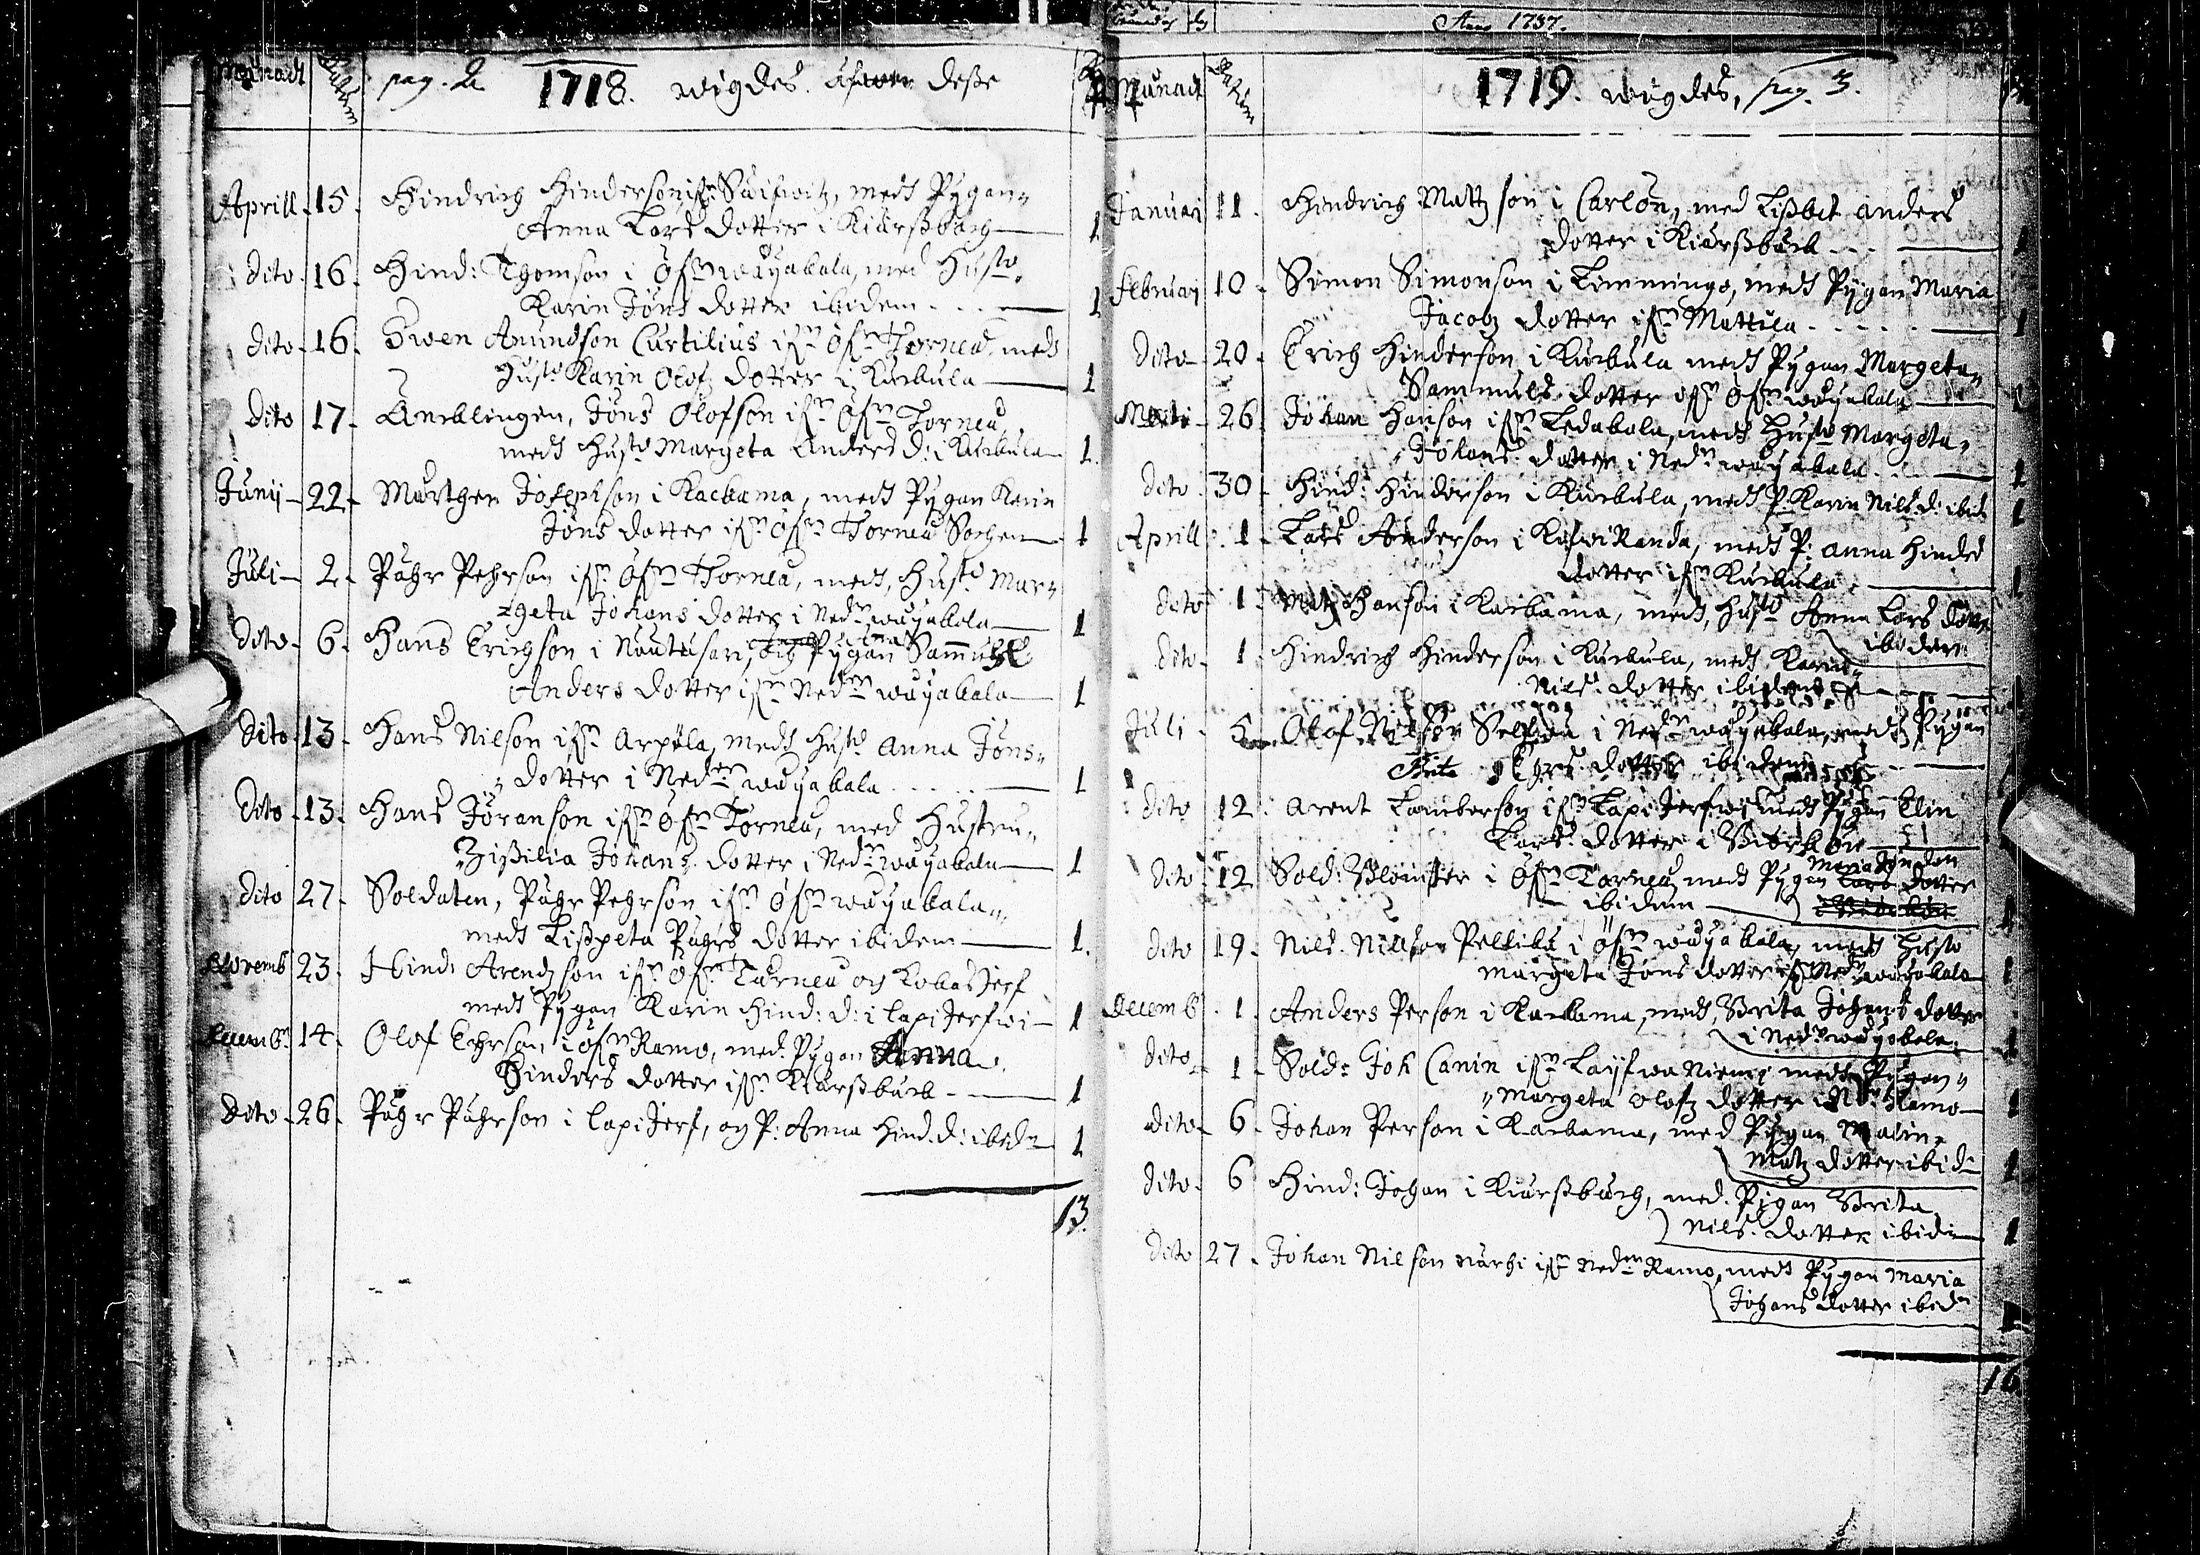 Anno 1737.
Månadt Datum pag. 2 1718. wigdes. deße
Aprill 15. Hindrich Hinderson ifrn, medt Pygan
Anna Lars dotter i Kiurßbach 1
dito 16. Hind: Thomson i Öfrwåjakala, med Husto
Karin Jöns dotter ibidem 1
dito 16. Swen Anundson Curtilius ifrn Öfr Torneå, medt
Husto Karin Olofz dotter i Kuckula 1
dito 17. Jöns Olofson ifrn Öfr Torneå
medt Husto Margeta Anders d: i Kuckula 1.
Junij 22. Mårthen Josephson i Kackama, medt Pygan Karin
Jöns dotter ifrn Öfr Torneå Sochen 1
Juli 2. Påhr Pehrson ifrn Öfr Torneå, medt, Husto Mar=
=geta Johans dotter i Nedr wåjakala 1
dito 6. Hans Erichson i Nautusari, och Pygan Sammuel
Anders dotter ifrn Nedr wåjakala 1
dito 13. Hans Nilson ifrn Arpela, medt Husto Anna Jöns
dotter i Neder wåjakala 1
dito 13. Hans Jöranson ifrn Öfr Torneå, med Hustru
Zißilia Johans dotter i Nedr wåjakala 1
dito 27. Soldaten, Påhr Pehrson ifrn Öfr wåjakala
medt Lißpeta Påhrs dotter ibidem 1.
Novemb 23. Hind: Arendzson ifrn Öfr Torneå och
medt Pygan Karin Hind: d: i Lapi Jerfwi 1
Decembr 14. Olof Ehrson i Öfr Ramo, med Pygan Anna
Hinders dotter ifrn Kiurßbach 1
dito 26. Påhr Påhrson i Lapi Jerf, og P: Anna Hind. d: ibidm 1
13.
Månadt Datum 1719. wigdes, pag. 3.
Januari 11. Hindrich Mattzson i Carlön, med Lißbet Anders
dotter i Kiurßbach 1
Februarj 10. Simon Simonson i Limmingo, medt Pygan Maria
Jacobz dotter ifrn Mattila 1
Dito 20. Erich Hinderson i Kuckula medt Pygan Margeta
Sammuels dotter ifrn Öfr wåjakala 1
26. Johan Hanson ifrn Ledakala, medt Husto Margeta
Johans dotter i Nedr wåjakala 1
dito 30. Hind: Hinderson i Kuckula, medt P. Karin Nils d: ibid: 1
Aprill 1. Lars Anderson i Kifwi Randa, medt P: Anna Hinders
dotter ifrn Kuckula 1
dito 1. Matz Hanson i Kackama, medt, Husto Anna Lars dotter
ibidem
dito 1. Hindrich Hinderson i Kuckula, medt Karin
Nils dotter ibidem 1
Juli 5. Olof Nilson i Nedr wåjakala, medt Pygan
Brita dotter ibidem
dito 12. Arent Lamberson ifrn Lapi Jerfwi medt Pygan Elin
Lars dotter i
dito 12 Sold: Blomster i Öfr Torneå medt Pygan Maria dotter
ibidem 1
dito 19. Nils Nilson i Öfr wåjakala, medt Husto
Margeta Jöns dotter ifrn Nedr wåjakala 1
Decemb 1. Anders Person i Kackama, med, Brita Johans dotter
i Nedr wåjakala 1
dito 1. Sold: Joh Canin ifrn Laifwa Niemi medt Pygan
Margeta Olofz dotter i Ramo 1
dito 6. Johan Person i Kackama, med Pygan Malin
Matz dotter ibid 1
dito 6 Hind: Johan i Kiurßbach, med Pigan Brita
Nils dotter ibid 1
dito 27. Johan Nilson närhi ifrn Neder Ramo, medt Pygan Maria
Johans dotter ibidm 1
16